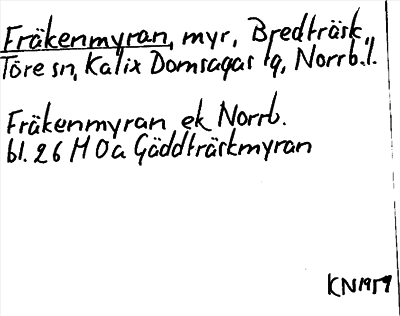 Fräkenmyran, myr, Bredträsk,
Töre sn, Kalix Domsagas lg, Norrb.l.
Fräkenmyran ek Norrb.
bl. 26 M 0a Gäddträskmyran
KN 1959